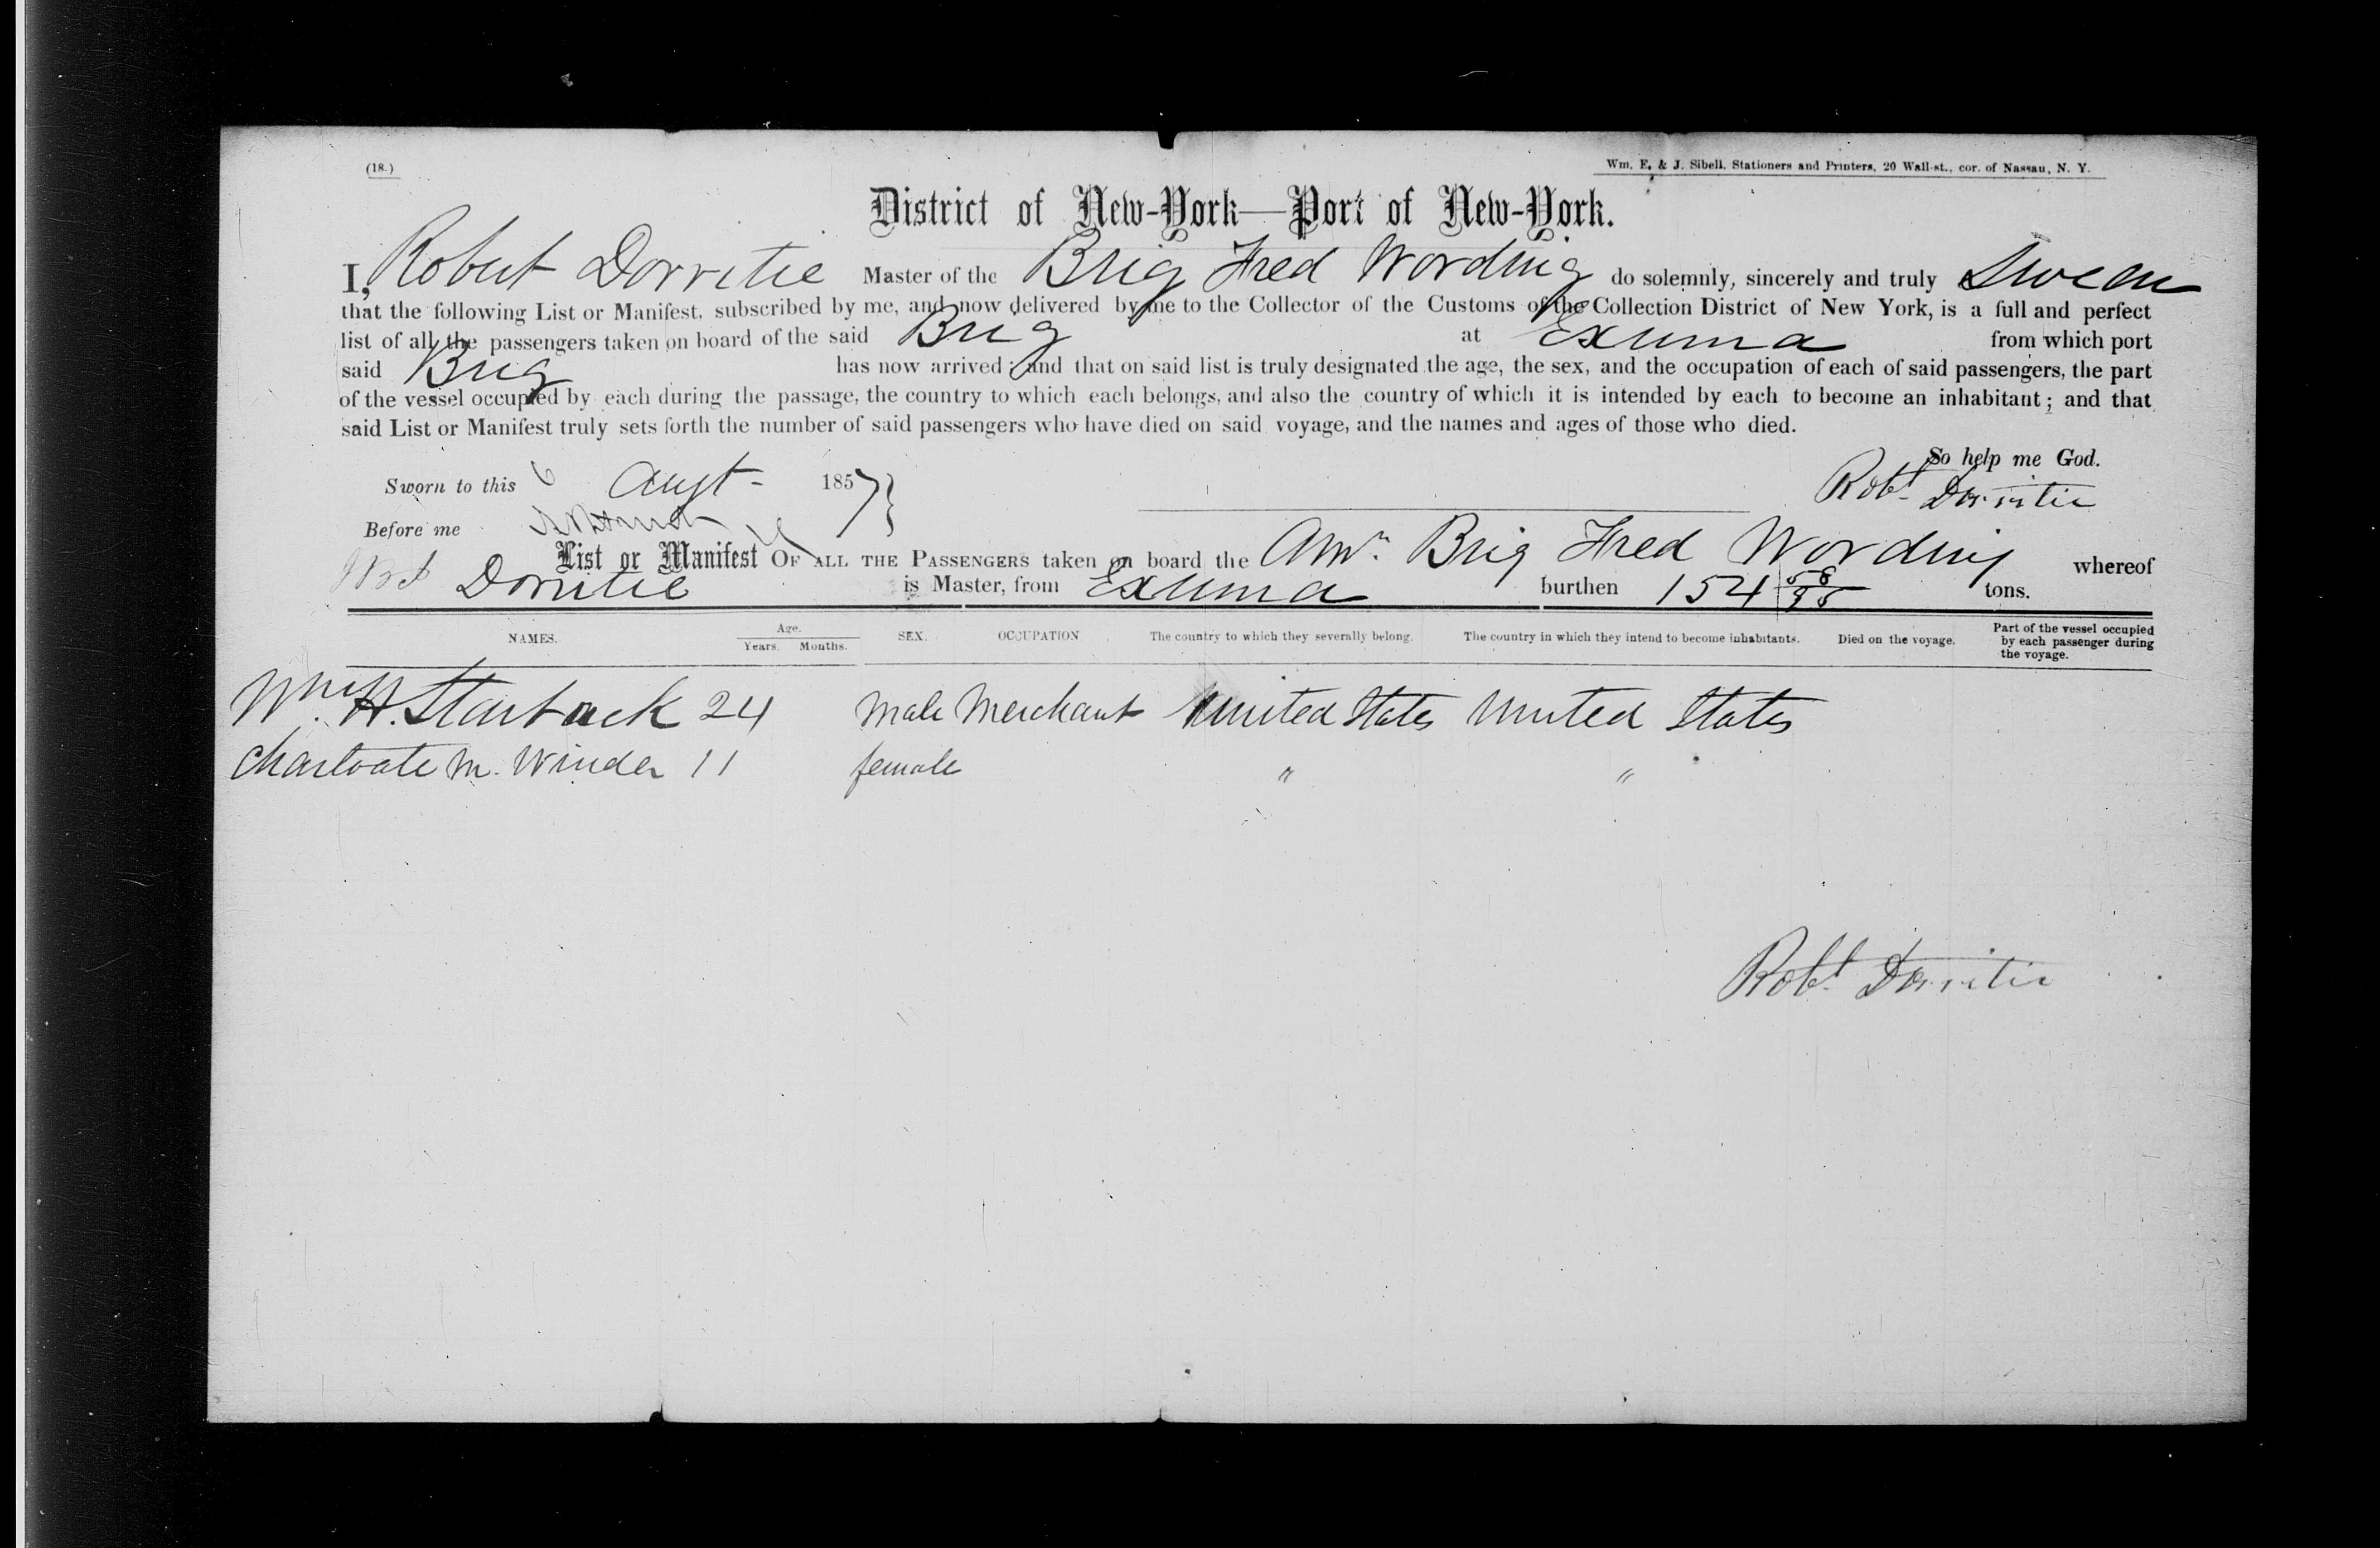 (18.)
Wm. E. & J. Sibell, Stationers and Printers, 20 Wall-st., cor. of Nassau, N. Y.
District of New-York—Port of New-York.
I, Robert Dorritie Master of the Brig Fred Wording do solemnly, sincerely and truly Swear
that the following List or Manifest, subscribed by me, and now delivered by me to the Collector of the Customs of the Collection District of New York, is a full and perfect
list of all the passengers taken on board of the said Brig at Exuma from which port
said Brig has now arrived; and that on said list is truly designated the age, the sex, and the occupation of each of said passengers, the part
of the vessel occupied by each during the passage, the country to which each belongs, and also the country of which it is intended by each to become an inhabitant; and that
said List or Manifest truly sets forth the number of said passengers who have died on said voyage, and the names and ages of those who died.
So help me God.
Sworn to this 6 Augt- 1857 }
Robt Dorritie
Before me
List or Manifest OF ALL THE PASSENGERS taken on board the Amn Brig Fred Wording whereof
Dorritie is Master, from Exuma burthen 154 58/95 tons.
NAMES. Age. Years. Months. SEX. OCCUPATION The country to which they severally belong. The country in which they intend to become inhabitants. Died on the voyage. Part of the vessel occupied by each passenger during the voyage.
Wm H. Starbuck 24 Male Merchant United States United States
Charloate M. Winder 11 female " "
Robt Dorritie